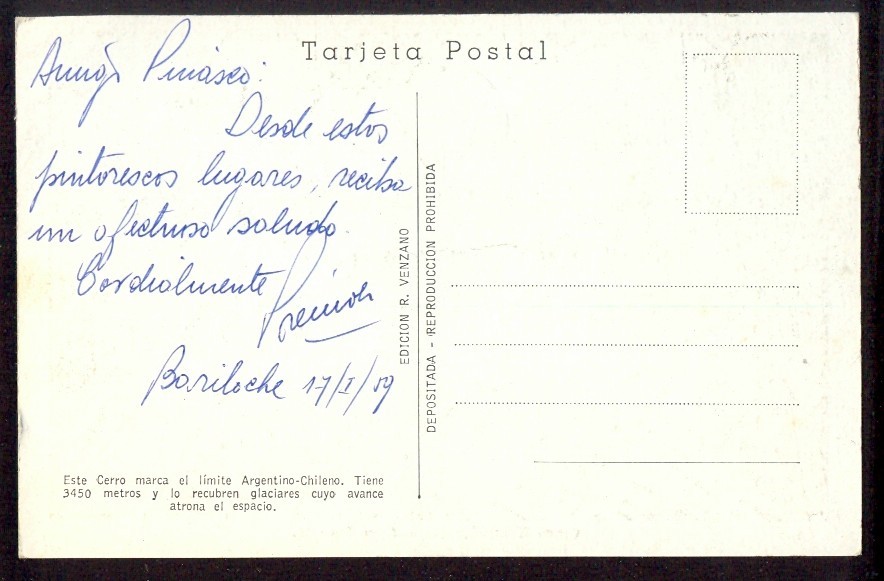 Tarjeta Postal
Amigo Pinasco:
Desde estos
pintorescos lugares, reciba
un afectuoso saludo.
Cordialmente
Bariloche 17/I/59
Este Cerro marca el límite Argentino-Chileno. Tiene
3450 metros y lo recubren glaciares cuyo avance
atrona el espacio.
EDICION R. VENZANO
DEPOSITADA - REPRODUCCION PROHIBIDA